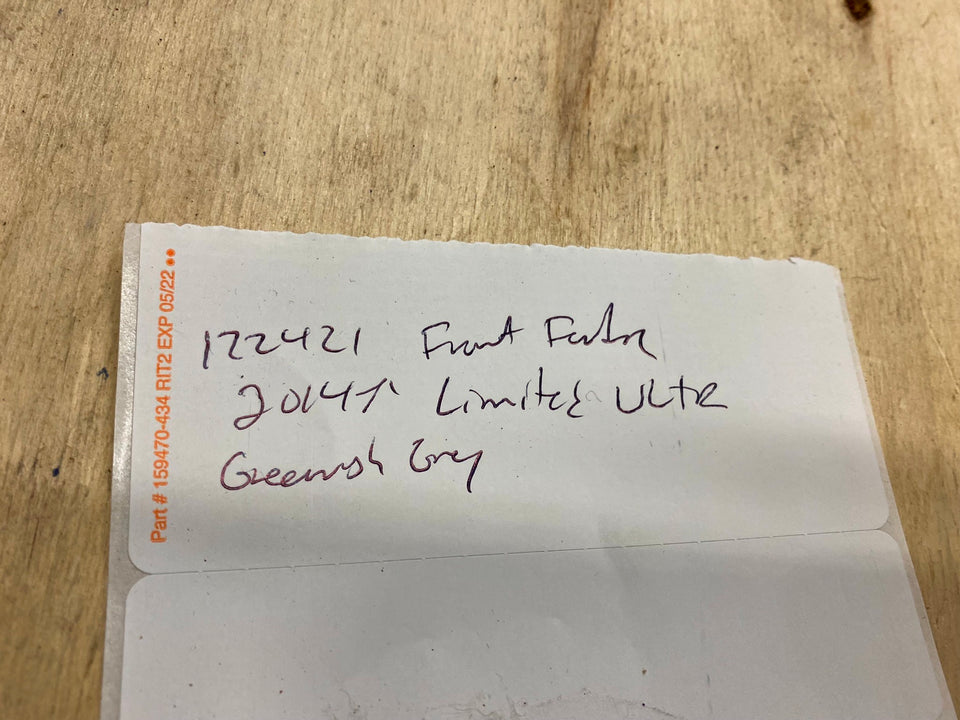 Part # 159470-434 RIT2 EXP 05/22 ••
122421 Front Fender
2014 Limited ULTR
Greenish Grey